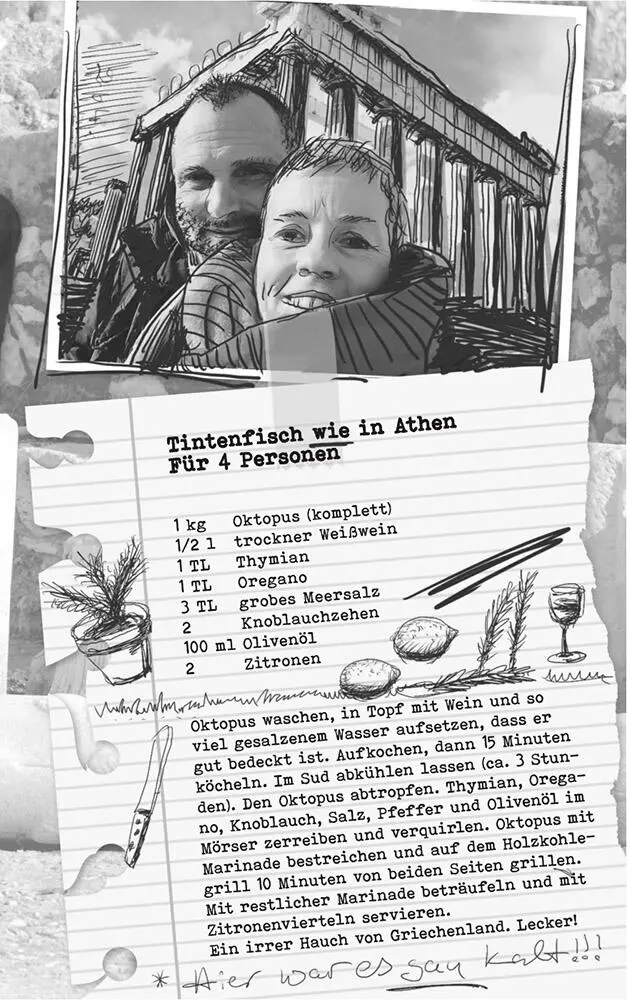 Tintenfisch wie in Athen
Für 4 Personen
1 kg Oktopus (komplett)
1/2 l trockner Weißwein
1 TL Thymian
1 TL Oregano
3 TL grobes Meersalz
2 Knoblauchzehen
100 ml Olivenöl
2 Zitronen
Oktopus waschen, in Topf mit Wein und so
viel gesalzenem Wasser aufsetzen, dass er
gut bedeckt ist. Aufkochen, dann 15 Minuten
köcheln. Im Sud abkühlen lassen (ca. 3 Stun-
den). Den Oktopus abtropfen. Thymian, Orega-
no, Knoblauch, Salz, Pfeffer und Olivenöl im
Mörser zerreiben und verquirlen. Oktopus mit
Marinade bestreichen und auf dem Holzkohle-
grill 10 Minuten von beiden Seiten grillen.
Mit restlicher Marinade beträufeln und mit
Zitronenvierteln servieren.
Ein irrer Hauch von Griechenland. Lecker!
* Hier war es kalt!!!